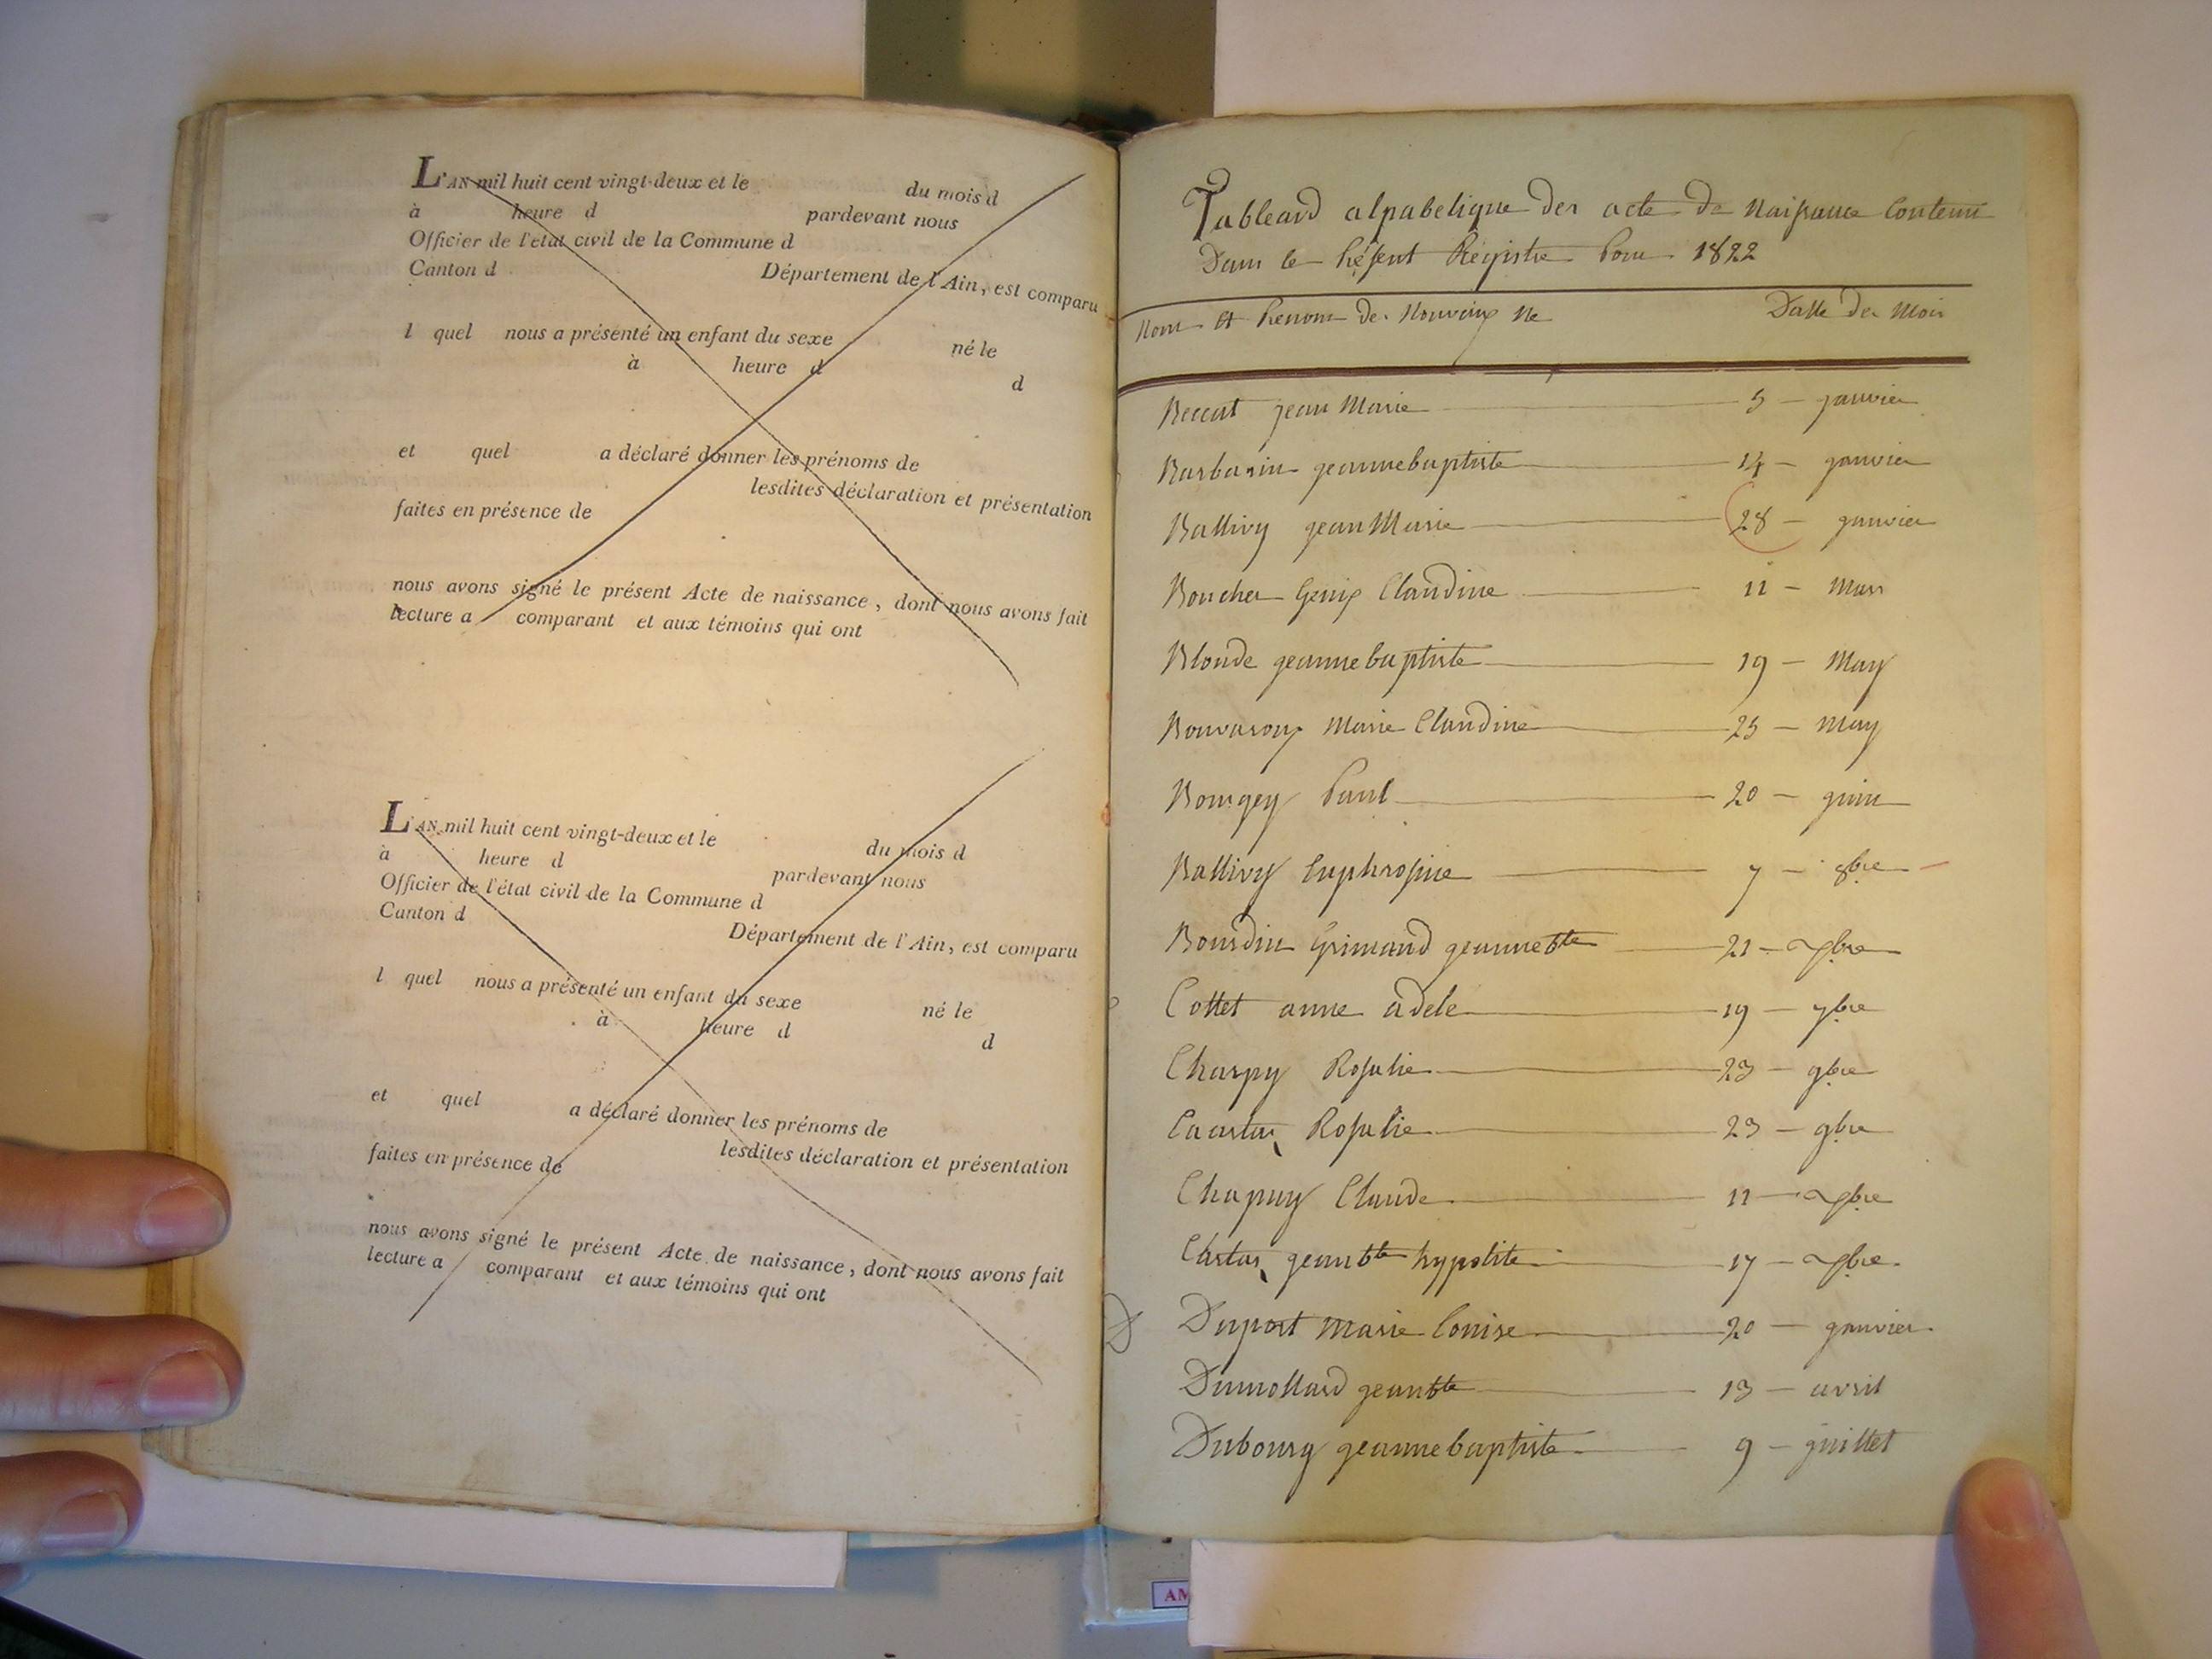 L'AN mil huit cent vingt-deux et le du mois d
à heure d pardevant nous
Officier de l'état civil de la Commune d
Canton d Département de l'Ain, est comparu
l quel nous a présenté un enfant du sexe né le
à heure d
d
et quel a déclaré donner les prénoms de
lesdites déclaration et présentation
faites en présence de
nous avons signé le présent Acte de naissance, dont nous avons fait
lecture a comparant et aux témoins qui ont
L'AN mil huit cent vingt-deux et le du mois d
à heure d pardevant nous
Officier de l'état civil de la Commune d
Canton d Département de l'Ain, est comparu
l quel nous a présenté un enfant du sexe né le
à heure d
d
et quel a déclaré donner les prénoms de
lesdites déclaration et présentation
faites en présence de
nous avons signé le présent Acte de naissance, dont nous avons fait
lecture a comparant et aux témoins qui ont
Tableard alpabetique der acte de Naissance Contenu
Dans le présent Registre Pour 1822
Nom et Prenom de Nouveaux Ne Datte de Mois
Beccat jean Marie 5 - janvier
Barbarin jeanne baptiste 14 - janvier
Ballivy jean Marie 28 - janvier
Boucher Genix Claudine 11 - Mars
Blonde jeanne baptiste 19 - May
Bouvaroux Marie Claudine 25 - May
Bourgey Paul 20 - juin
Ballivy Euphrosine 7 - 8bre
Bourdin Grimand jeanne bte 21 - Xbre
Cottet anne adele 19 - 7bre
Charpy Rosalie 23 - 9bre
Rosalie 23 - 9bre
Chapuy Claude 11 - Xbre
jean bte hypolite 17 - Xbre
D Duport Marie Louise 20 - janvier
Dumollard jean bte 13 - avril
Dubourg jeanne baptiste 9 - juillet
AM